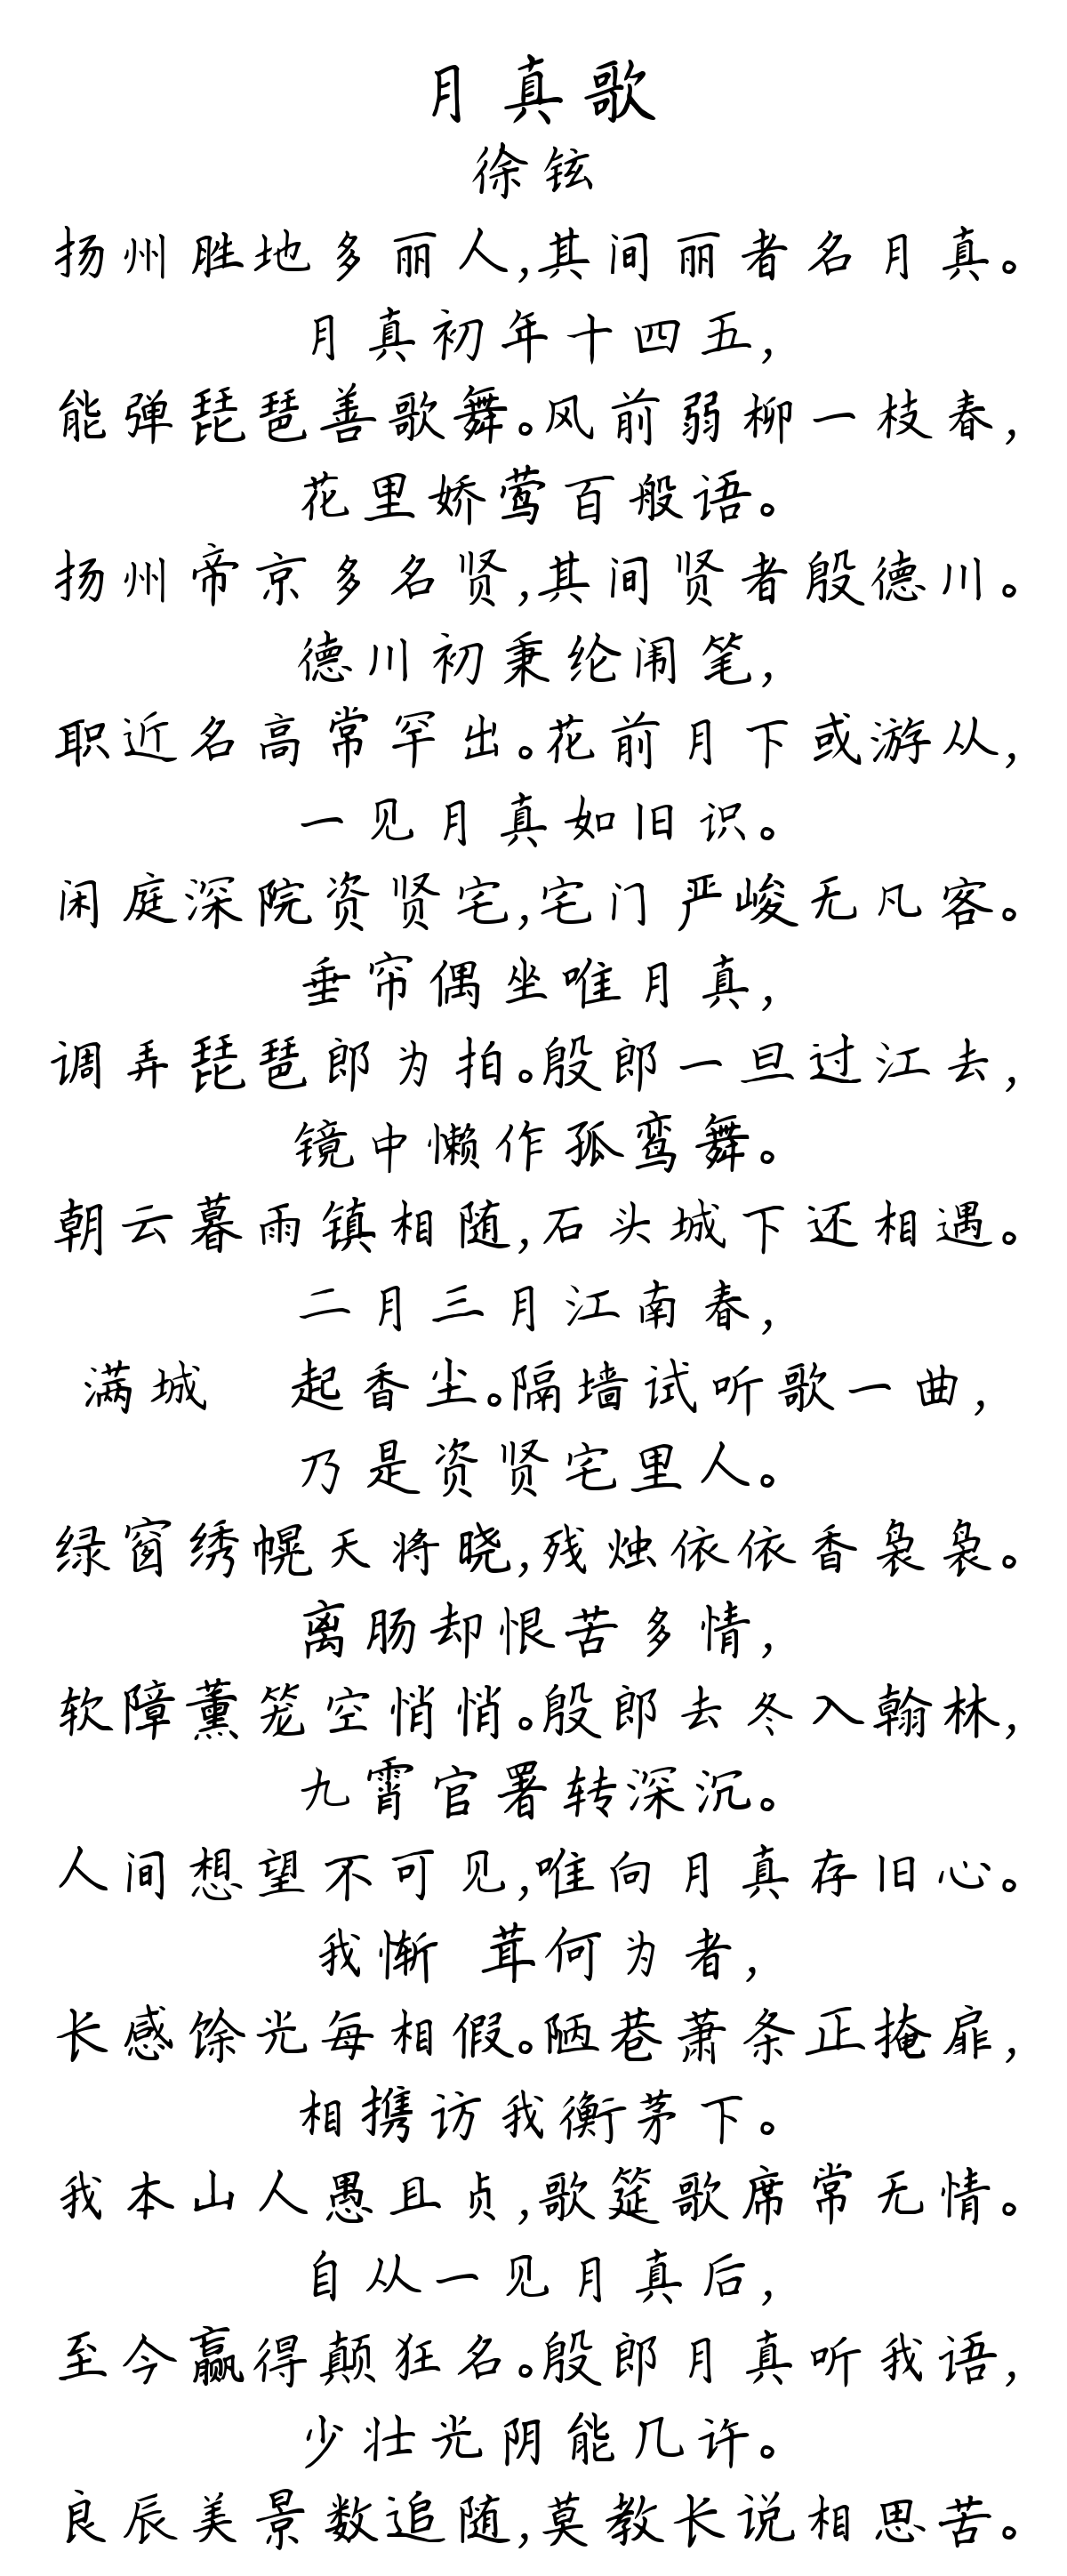 月真歌
徐铉
扬州胜地多丽人,其间丽者名月真。
月真初年十四五,
能弹琵琶善歌舞。风前弱柳一枝春,
花里娇莺百般语。
扬州帝京多名贤,其间贤者殷德川。
德川初秉纶闱笔,
职近名高常罕出。花前月下或游从,
一见月真如旧识。
闲庭深院资贤宅,宅门严峻无凡客。
垂帘偶坐唯月真,
调弄琵琶郎为拍。殷郎一旦过江去,
镜中懒作孤鸾舞。
朝云暮雨镇相随,石头城下还相遇。
二月三月江南春,
满城 起香尘。隔墙试听歌一曲,
乃是资贤宅里人。
绿窗绣幌天将晓,残烛依依香袅袅。
离肠却恨苦多情,
软障薰笼空悄悄。殷郎去冬入翰林,
九霄官署转深沉。
人间想望不可见,唯向月真存旧心。
我惭 茸何为者,
长感馀光每相假。陋巷萧条正掩扉,
相携访我衡茅下。
我本山人愚且贞,歌筵歌席常无情。
自从一见月真后,
至今赢得颠狂名。殷郎月真听我语,
少壮光阴能几许。
良辰美景数追随,莫教长说相思苦。